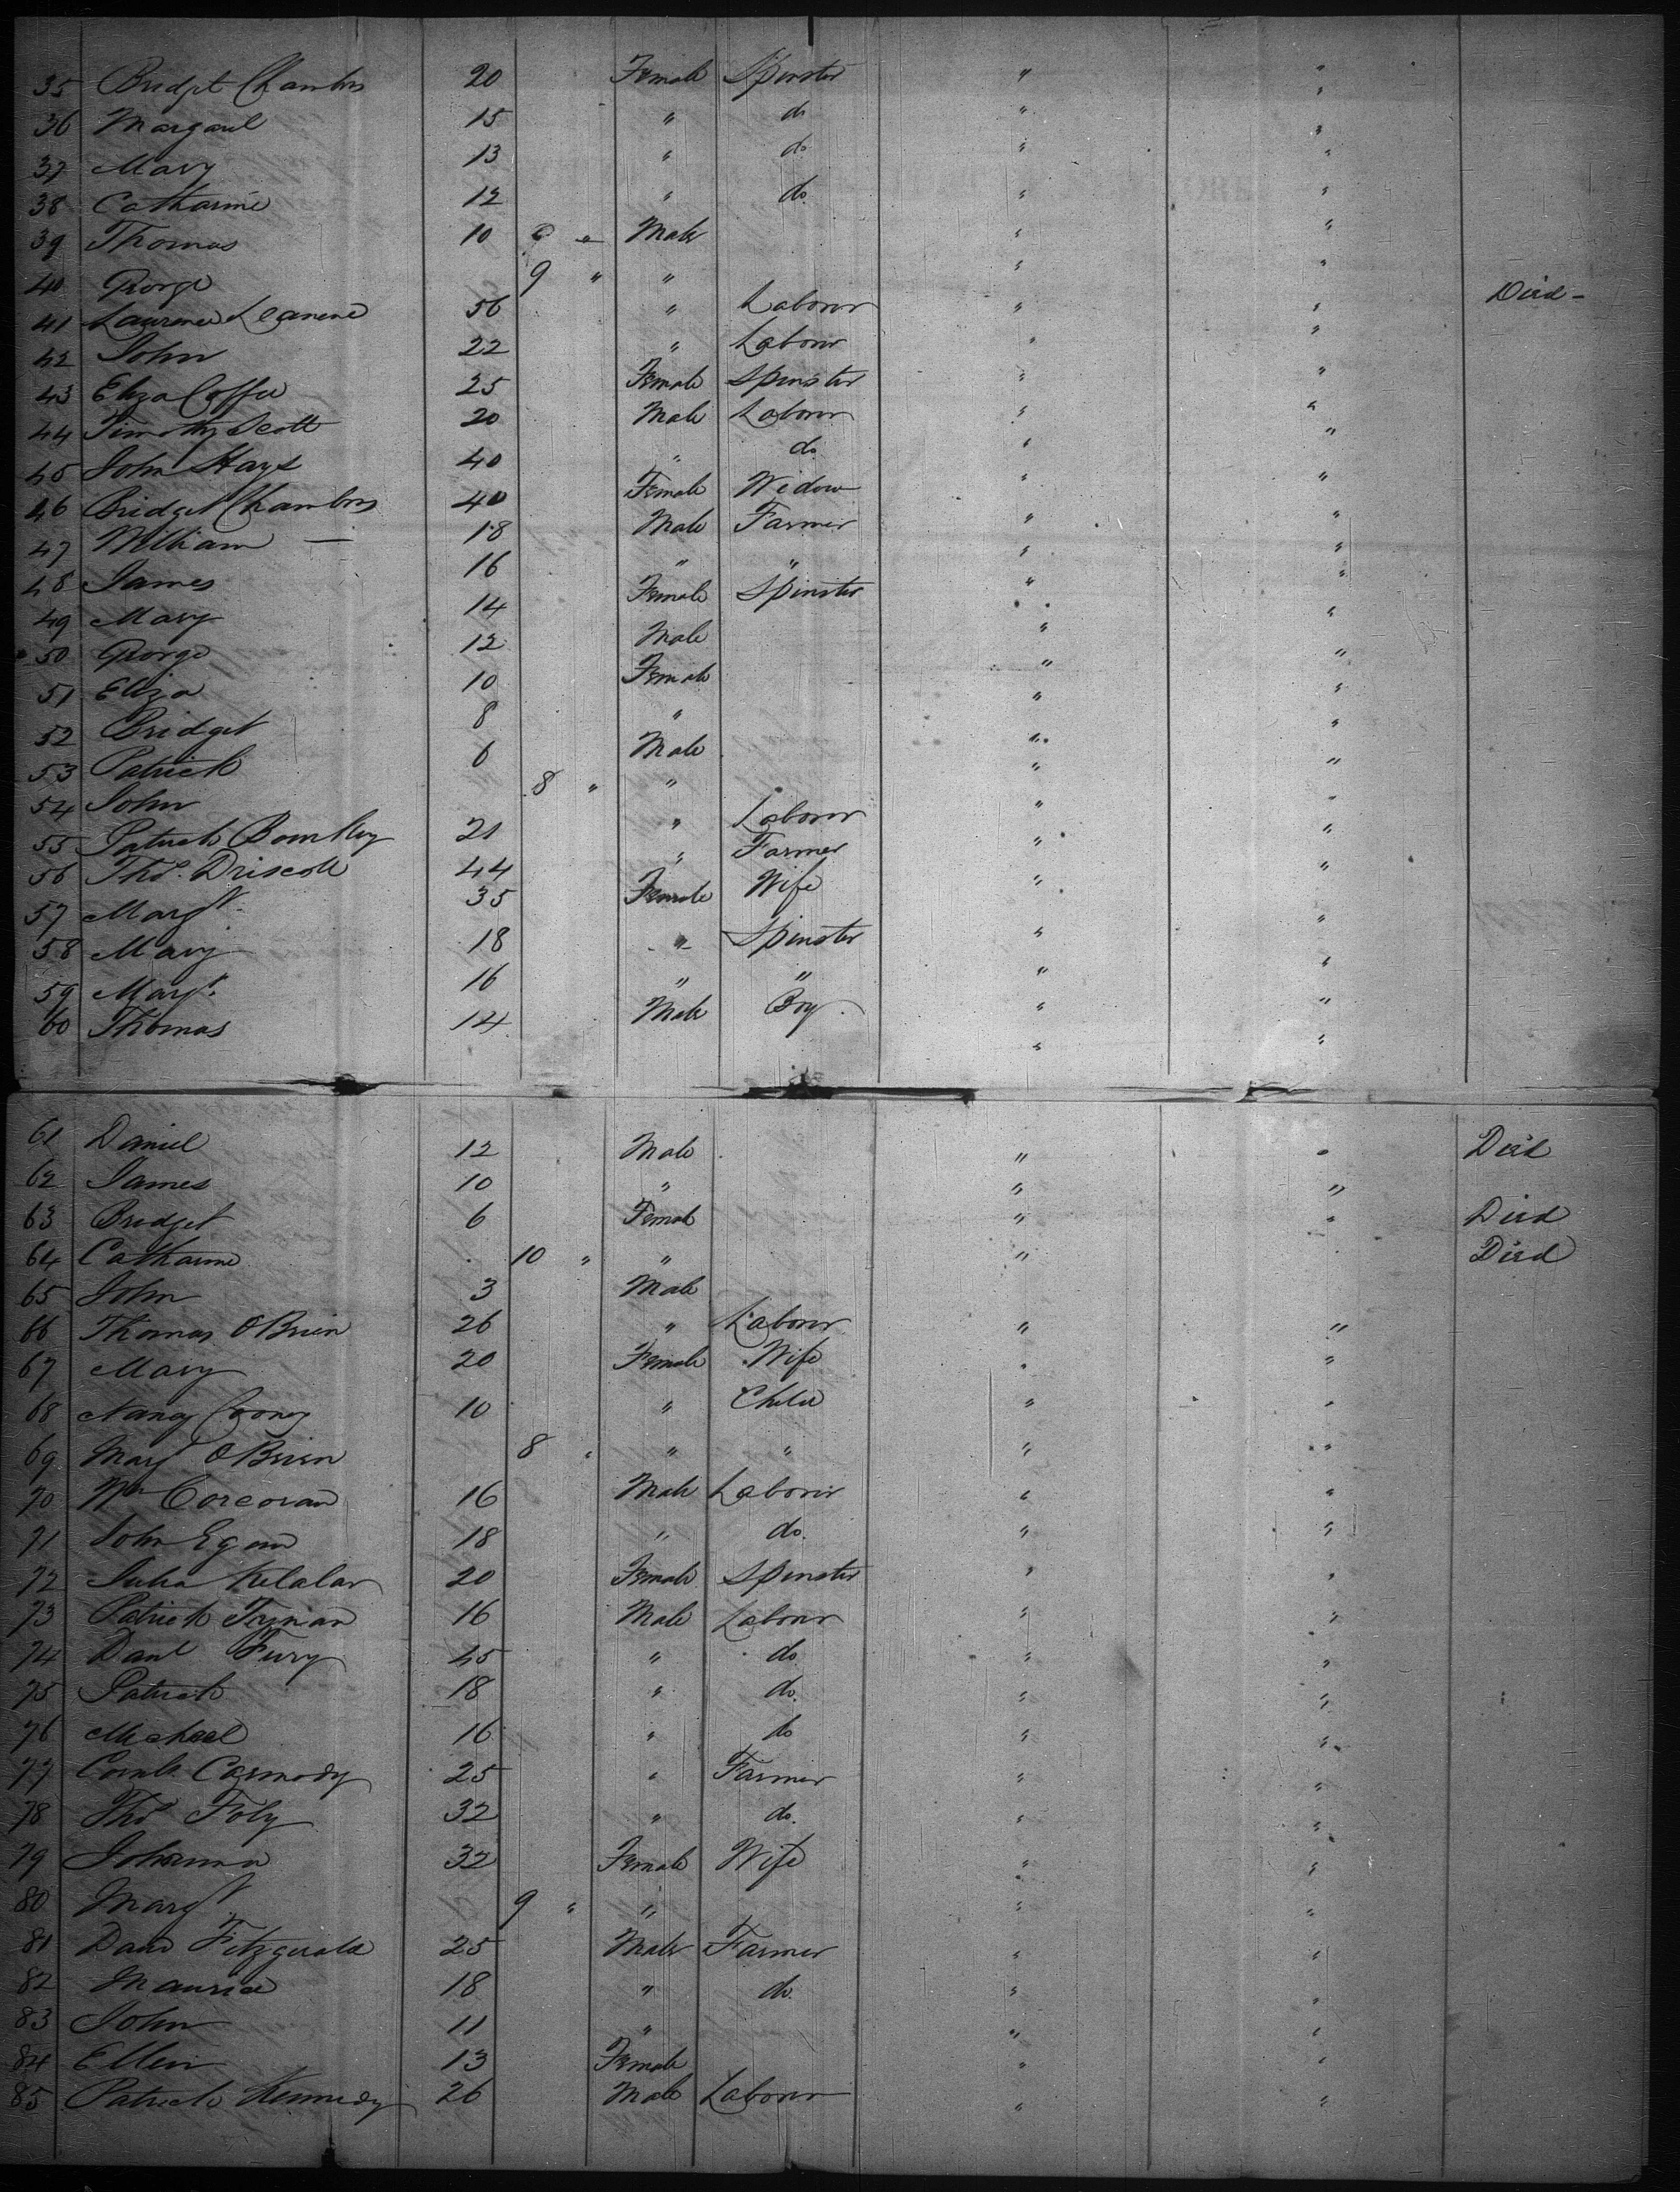 35 Bridget Chambers 20 Female Spinster " "
36 Margaret 15 " do " "
37 Mary 13 " do " "
38 Catharine 12 " do " "
39 Thomas 10 Male " "
40 George 9 " " " " Died -
41 Laurence 56 " Laborer " "
42 John 22 " Laborer " "
43 Eliza Coffee 25 Female Spinster " "
44 Timothy Scott 20 Male Laborer " "
45 John Hays 40 " do " "
46 Bridget Chambers 40 Female Widow " "
47 William — 18 Male Farmer " "
48 James 16 " " " "
49 Mary 14 Female Spinster " "
50 George 12 Male " "
51 Eliza 10 Female " "
52 Bridget 8 " " "
53 Patrick 6 Male " "
54 John 8 " " " "
55 Patrick 21 " Laborer " "
56 Thos. Driscoll 44 " Farmer " "
57 Margt. 35 Female Wife " "
58 Mary 18 " Spinster " "
59 Margt. 16 " " " "
60 Thomas 14 Male Boy " "
61 Daniel 12 Male " " Died
62 James 10 " " "
63 Bridget 6 Female " " Died
64 Catharine 10 " " " Died
65 John 3 Male
66 Thomas OBrien 26 " Laborer " "
67 Mary 20 Female Wife " "
68 Nancy Cooney 10 " Child " "
69 Mary OBrien 8 " " " " "
70 Wm Corcoran 16 Male Laborer " "
71 John Egan 18 " do. " "
72 Julia Kelalar 20 Female Spinster " "
73 Patrick Tynian 16 Male Laborer " "
74 Danl Fury 45 " do " "
75 Patrick 18 " do. " "
76 Micheal 16 " do " "
77 Carmody 25 " Farmer " "
78 Thos Foly 32 " do. " "
79 Johanna 32 Female Wife " "
80 Margt 9 " " " "
81 Fitzgerald 25 Male Farmer " "
82 Maurice 18 " do. " "
83 John 11 " " "
84 Ellen 13 Female " "
85 Patrick Kennedy 26 Male Laborer " "